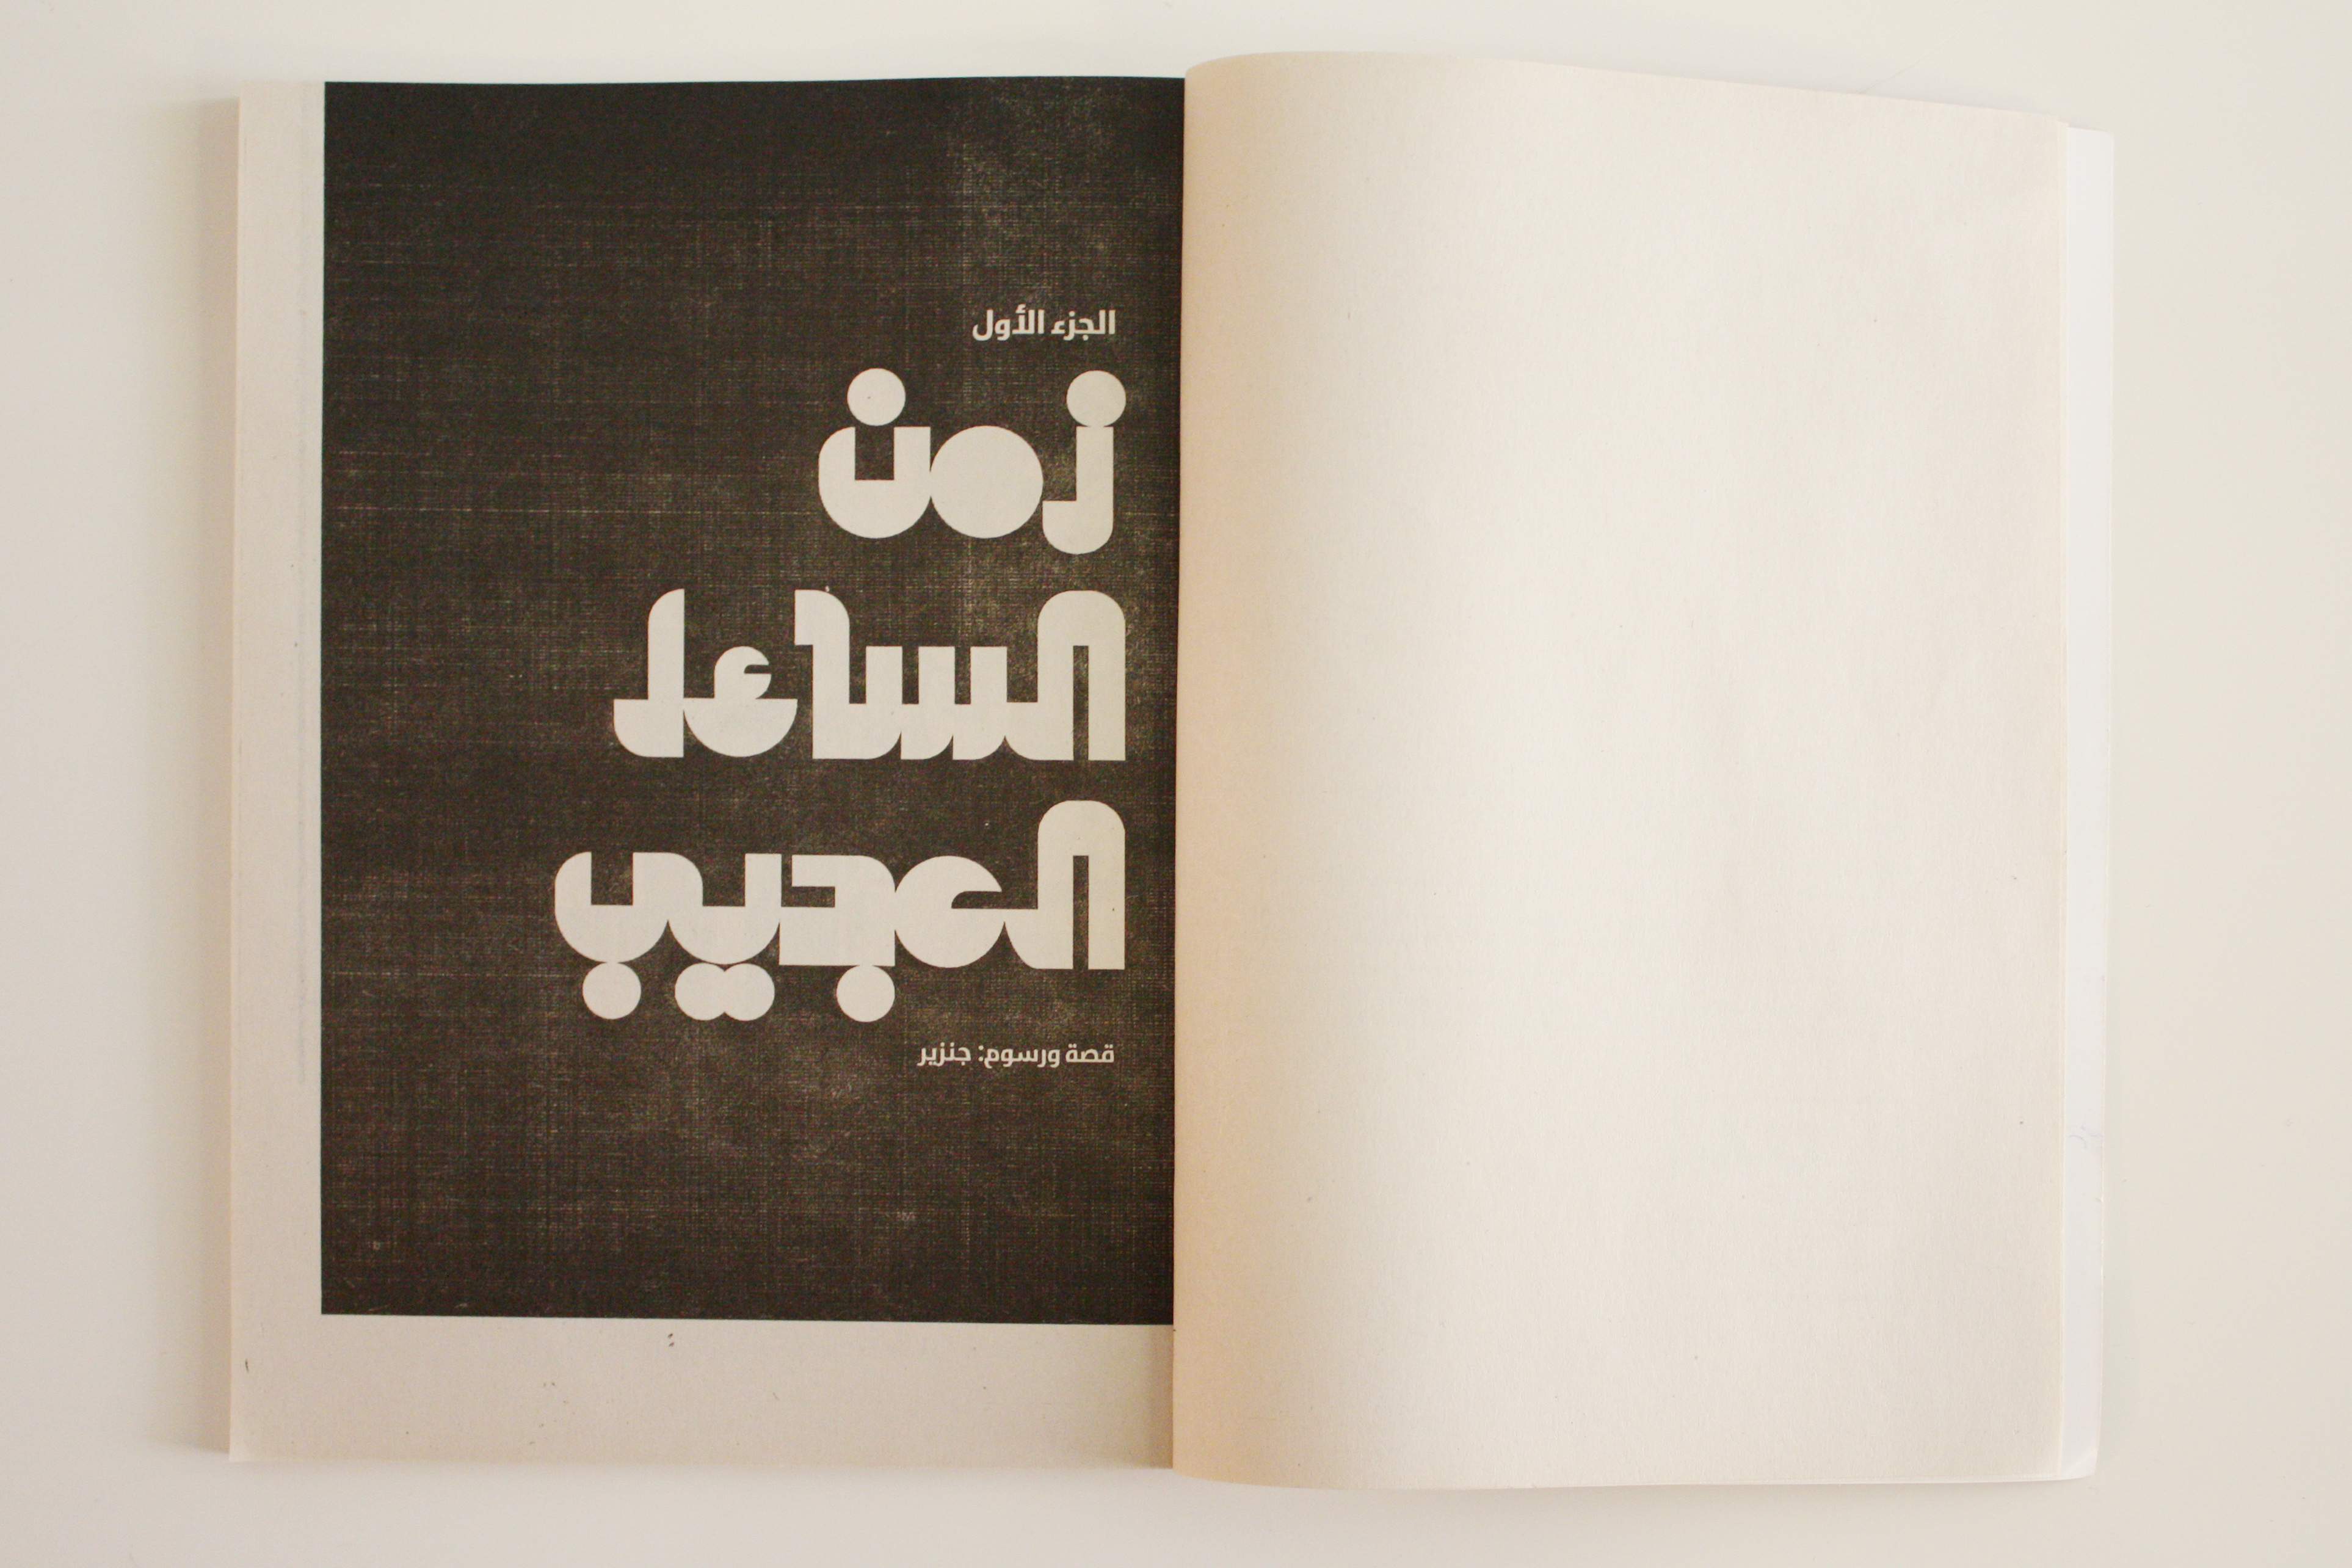 الجزء الأول
زمن
السائل
العجيب
قصة ورسوم: جنزير